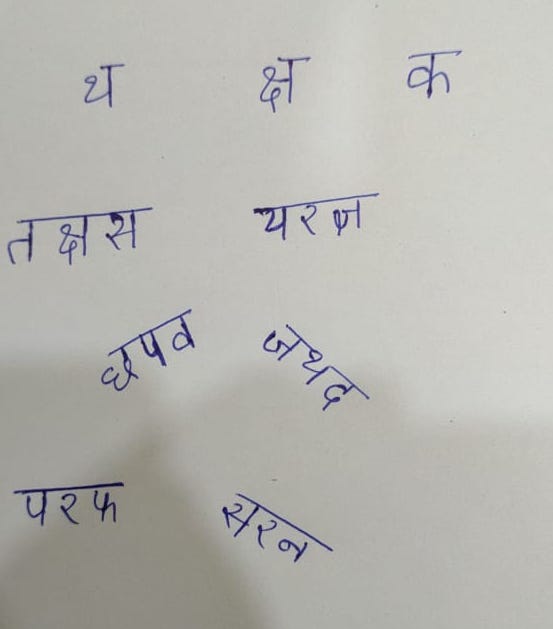 थ क्ष क
तक्षस यरज्ञ
छपव जथद
परफ सरन